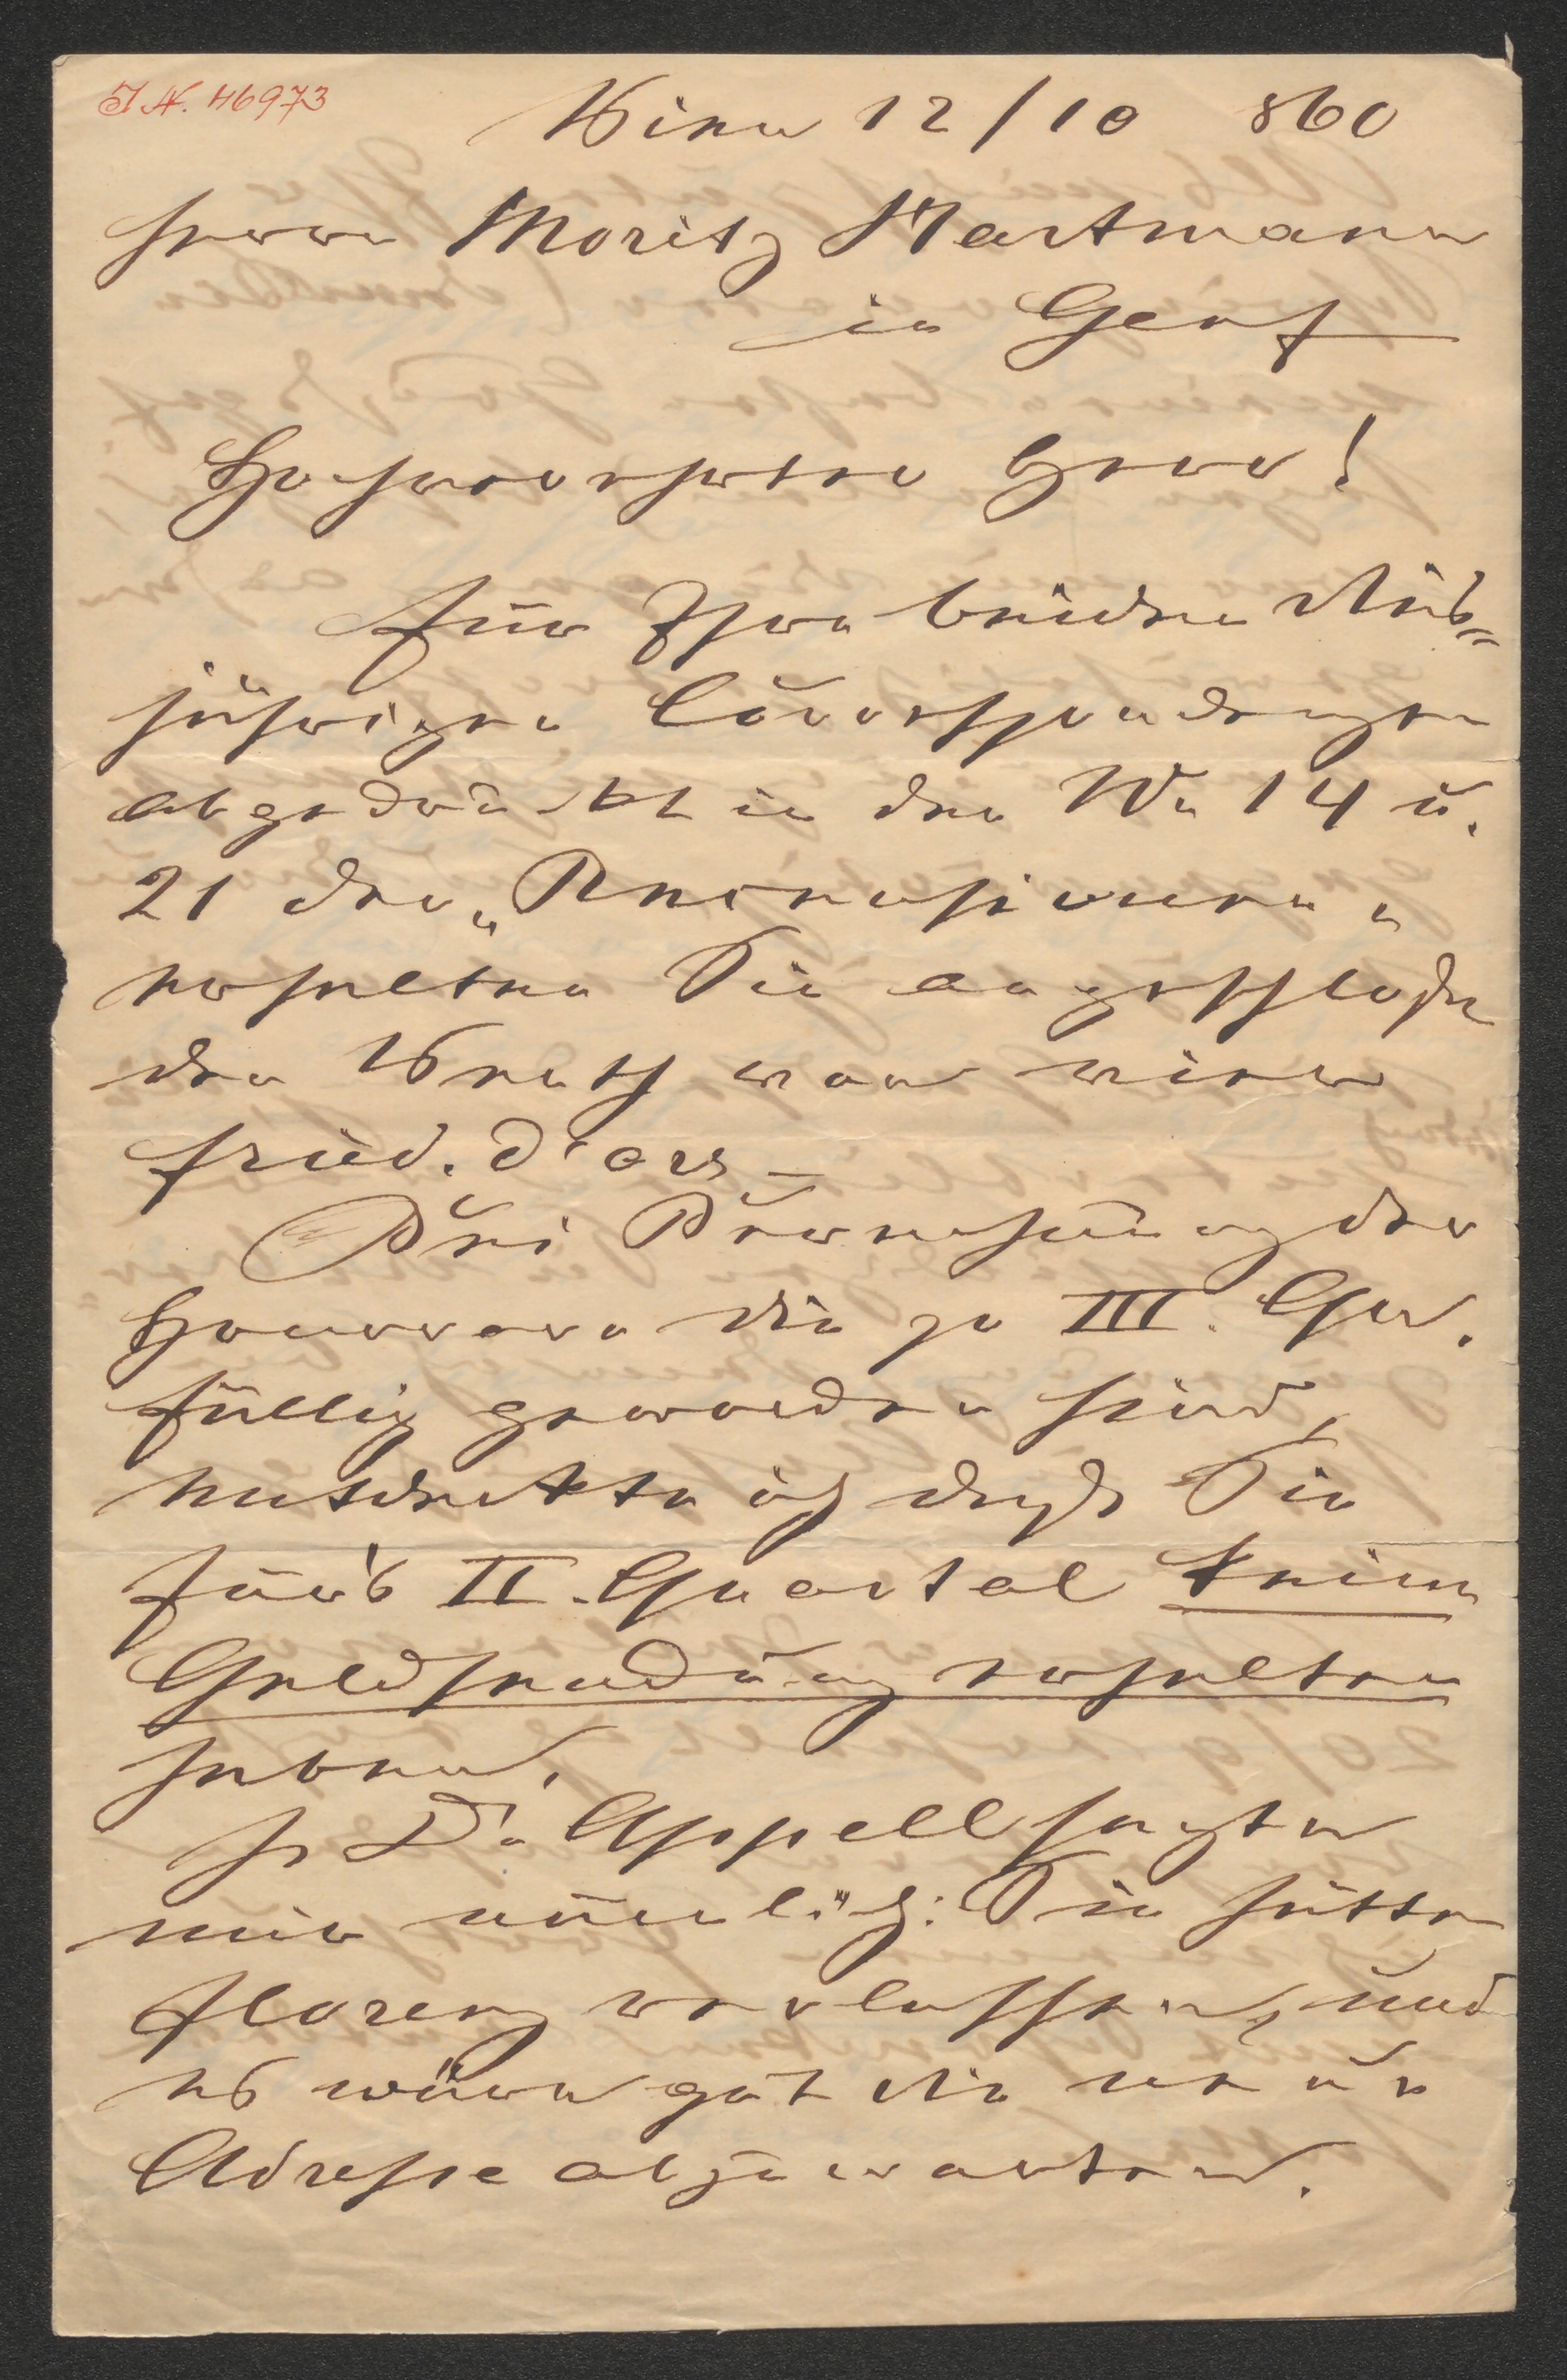 I.N. 46973
Wien 12/10 860
Herrn Moritz Hartmann
in Genf
Hochverehrter Herr!
Für Ihre beiden dieß=
jährigen Correspondenzen
abgedruckt in den Nr 14 u.
21 der „Recensionen“
erhalten Sie angeschlossen
den Werth von einem
Fried. d'or.
Bei Berechnung der
Honorare die pr III. Qu.
fällig geworden sind,
entdeckte ich daß Sie
für's II. Quartal keine
Geldsendung erhalten
haben.
Hr Dr Appell sagte
mir neulich: Sie hätten
Florenz verlassen, und
es wäre gut die neue
Adresse abzuwarten.